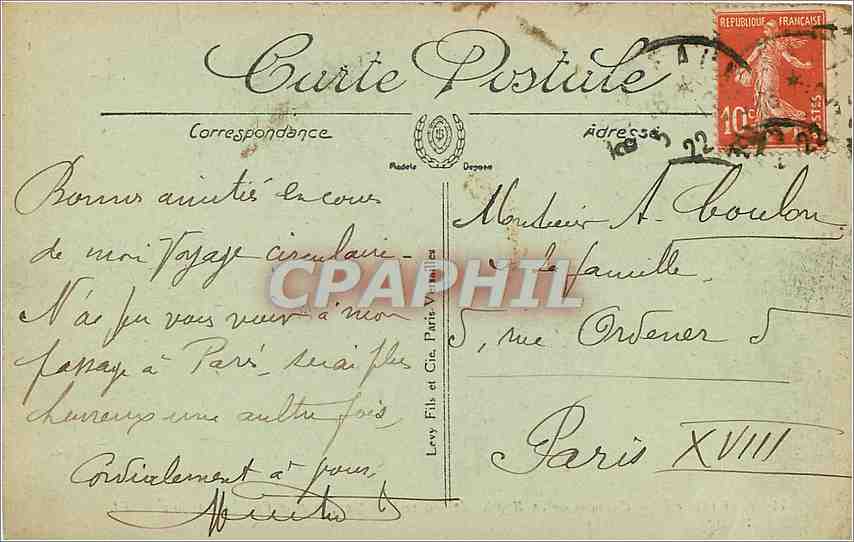 Carte Postale
REPUBLIQUE FRANÇAISE
10c
POSTES
22
22
Correspondance
Adresse
Modele Depose
Bonnes amitiés en cours
de mon Voyage circulaire -
N'ai pu vous voir à mon
passage à Paris, serai plus
heureux une autre fois,
Cordialement à vous,
Levy Fils et Cie, Paris-Versailles
Monsieur A. Coulon
& la famille
5, rue Ordener 5
Paris XVIII
CPAPHIL